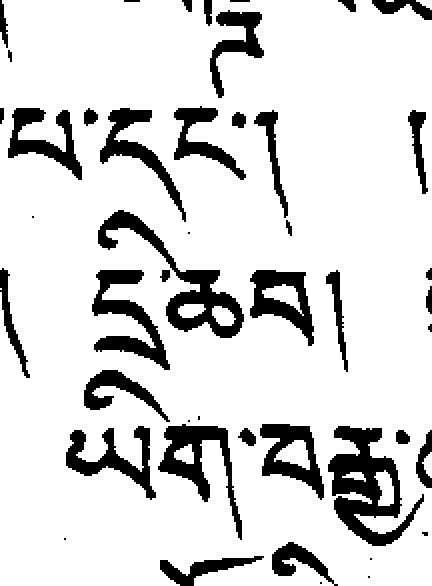 པ་དང་། །
། དྲི་ཆབ།
ཡིག་བརྒྱ་